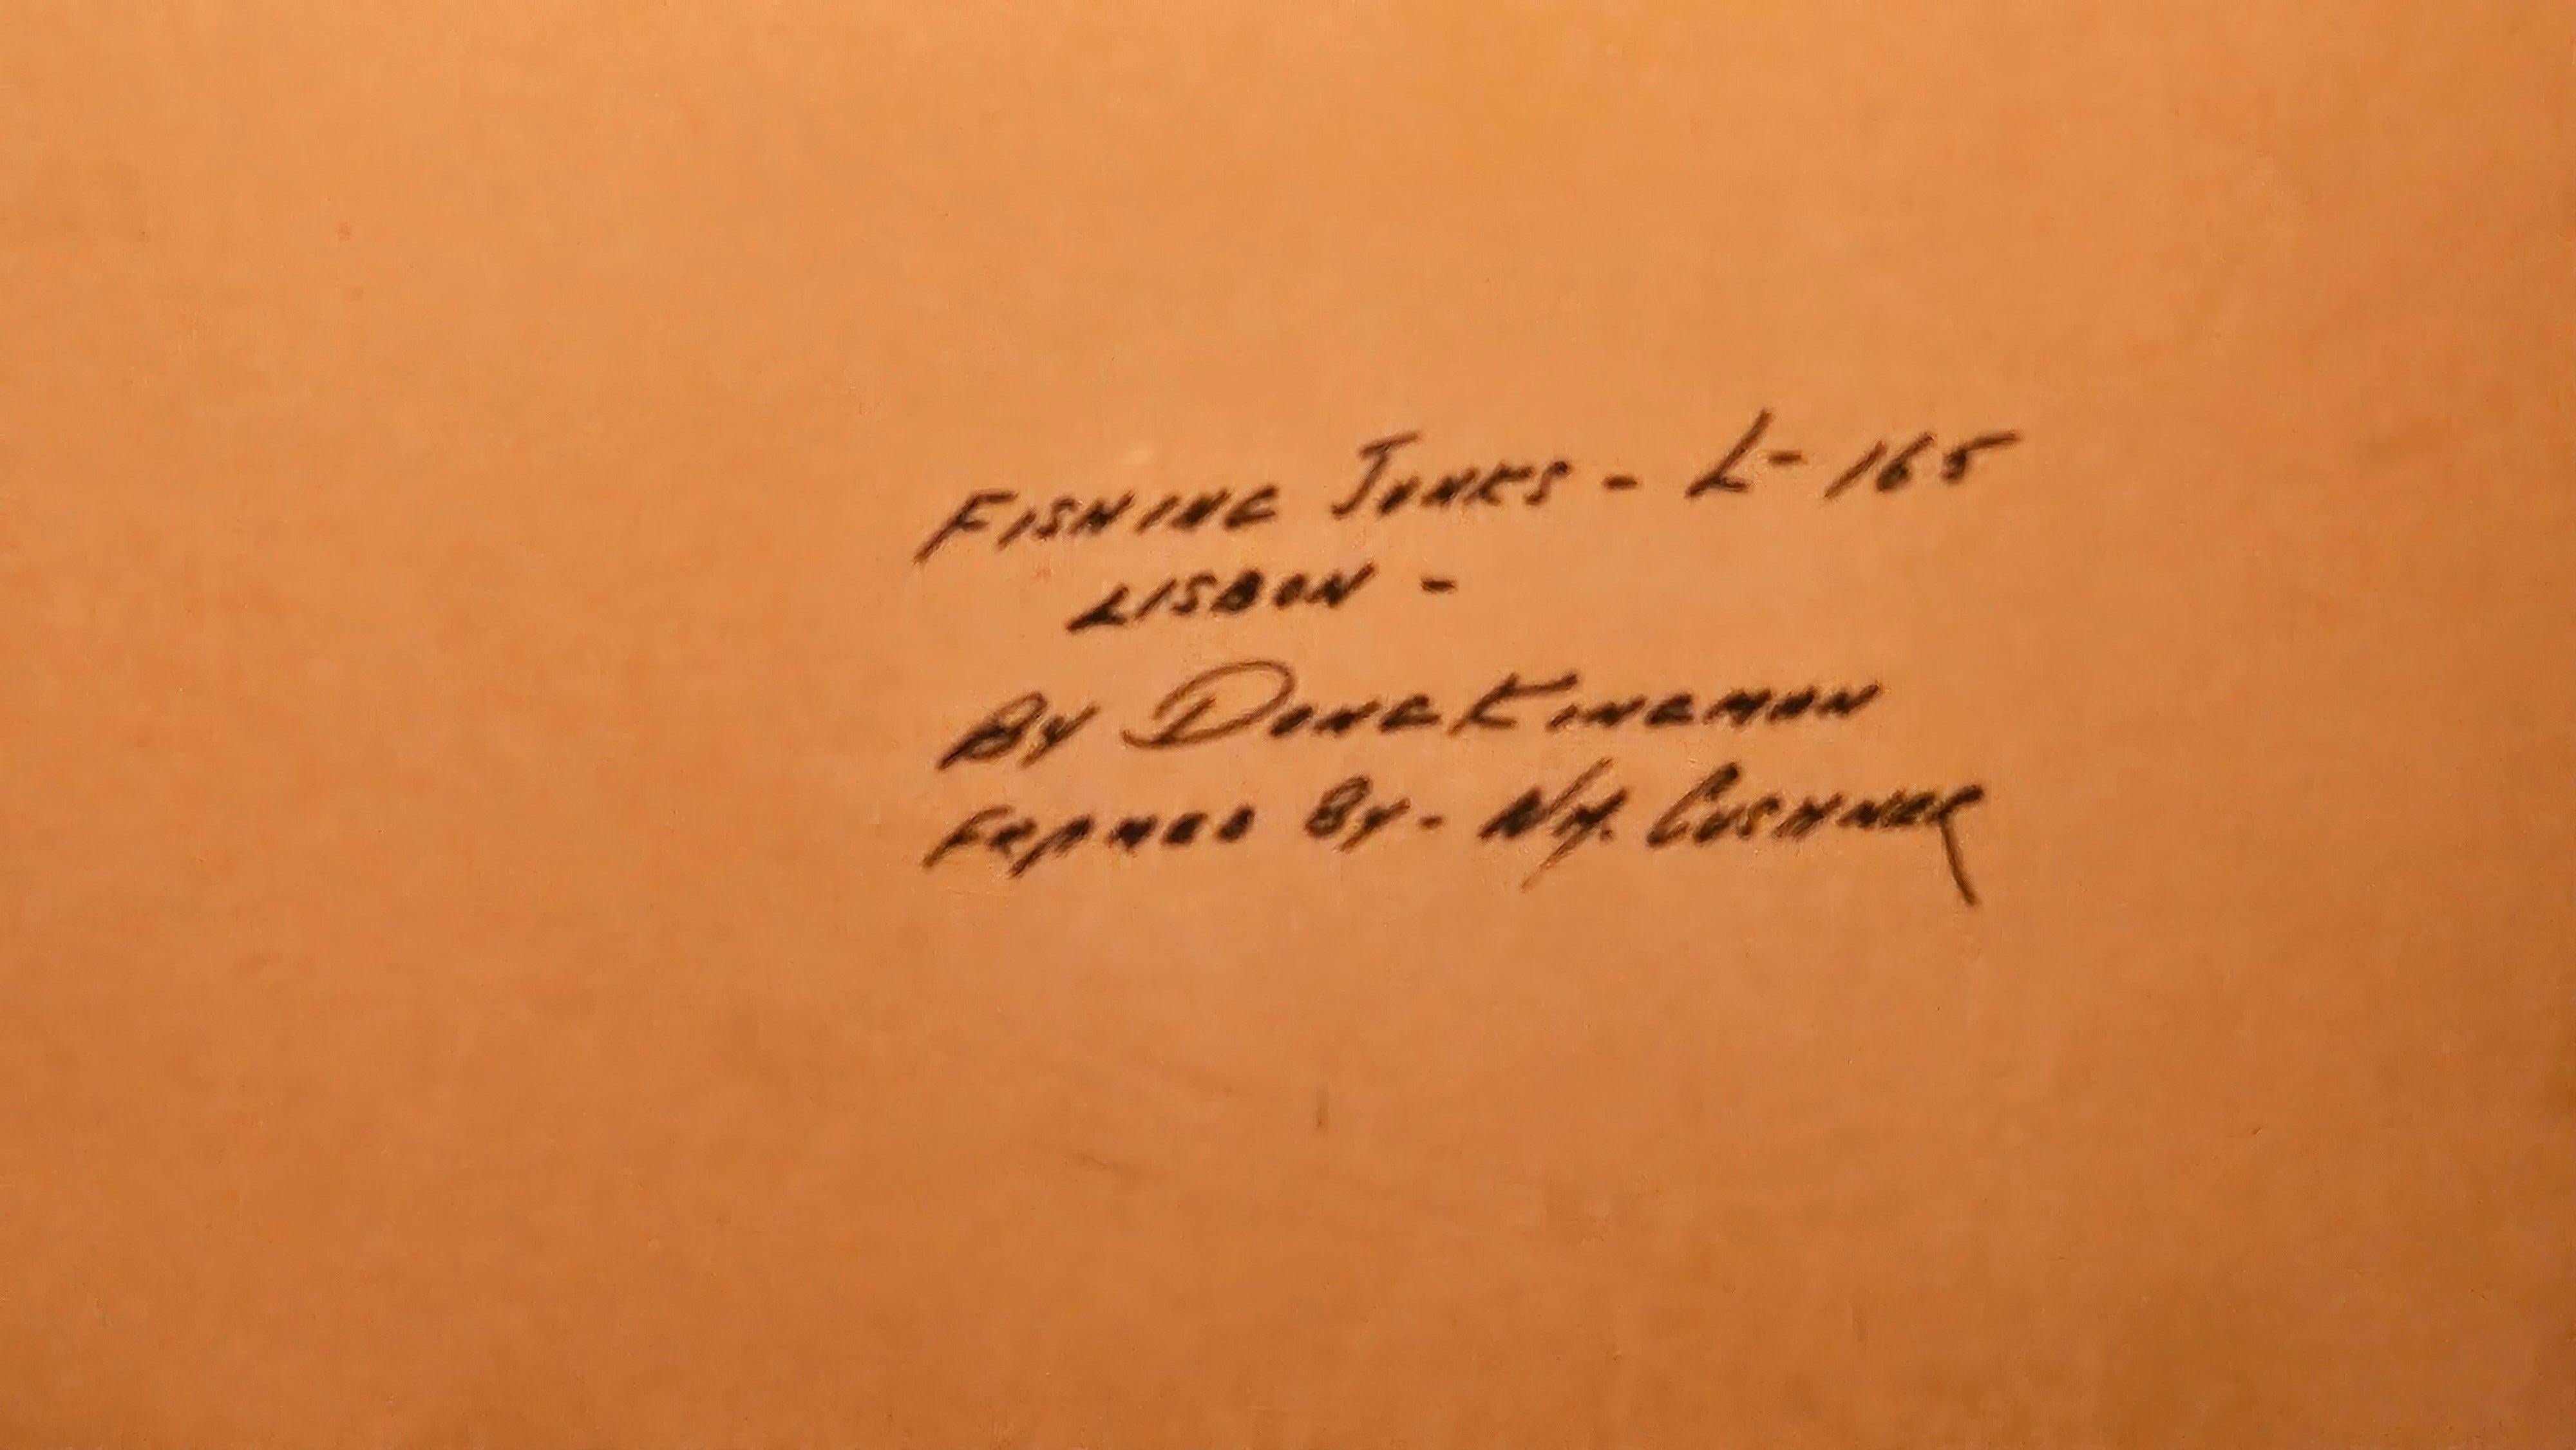 FISHING JUNKS - L- 165
LISBON -
BY DONG KINGMAN
FRAMED BY - WM. CUSHNER